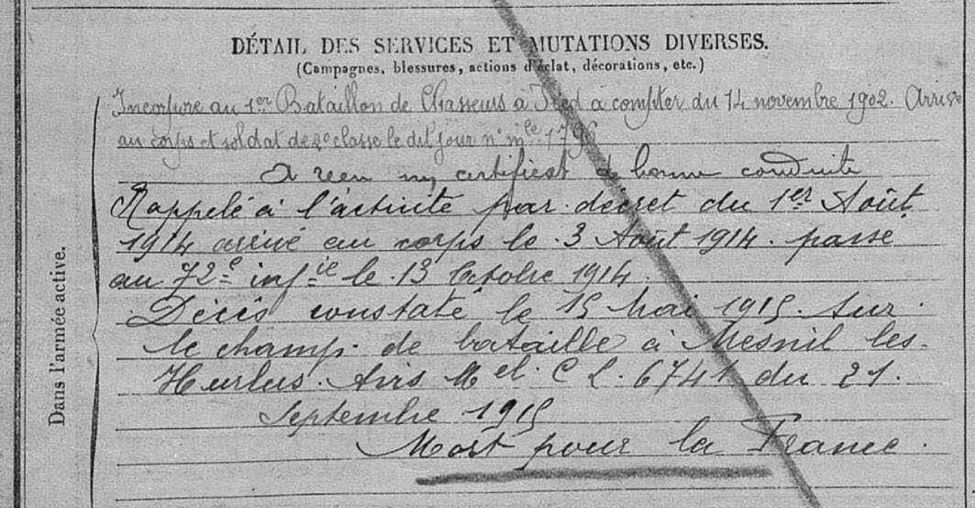 DÉTAIL DES SERVICES ET MUTATIONS DIVERSES.
(Campagnes, blessures, actions d'éclat, décorations, etc.)
Incorporé au 1er Bataillon de Chasseurs à Pied à compter du 14 novembre 1902. Arrivé
au corps et soldat de 2e classe le dit jour n° mle 1796
A reçu un certificat de bonne conduite
Rappelé à l'activité par décret du 1er Août
1914 arrivé au corps le 3 Août 1914. passé
au 72e infie le 13 Octobre 1914.
Décès constaté le 15 Mai 1915. sur
le champ de bataille à Mesnil les
Hurlus. Avis Mel. C L. 6741 du 21.
Septembre 1915
Mort pour la France.
Dans l'armée active.